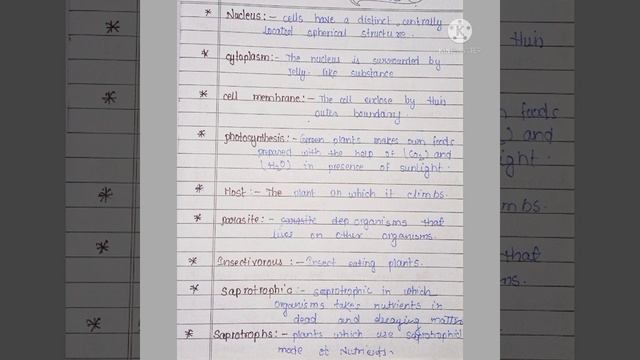 * Nucleus:- cells have a distinct, centrally
located spherical structure.
* cytoplasm:- The nucleus is surrounded by
Jelly-like substance
* cell membrane:- The cell enclose by thin
outer boundary.
* photosynthesis:- Green plants makes own foods
prepared with the help of (CO2) and
(H2O) in presence of sunlight.
* Host:- The plant on which it climbs.
* parasite:- organisms that
lives on other organisms.
* Insectivorous:- Insect eating plants.
* saprotrophic:- saprotrophic in which
organisms takes nutrients in
dead and decaying matter
* Saprotrophs:- plants which use saprotrophic
mode of Nutrients.